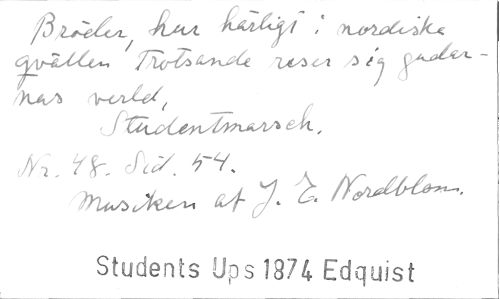 Bröder, hur härligt i nordiska
qvällen Trotsande reser sig gudar-
nas verld,
Studentmarsch.
Nr. 48. Sid. 54.
Musiken af J. E. Nordblom.
Students Ups 1874 Edquist